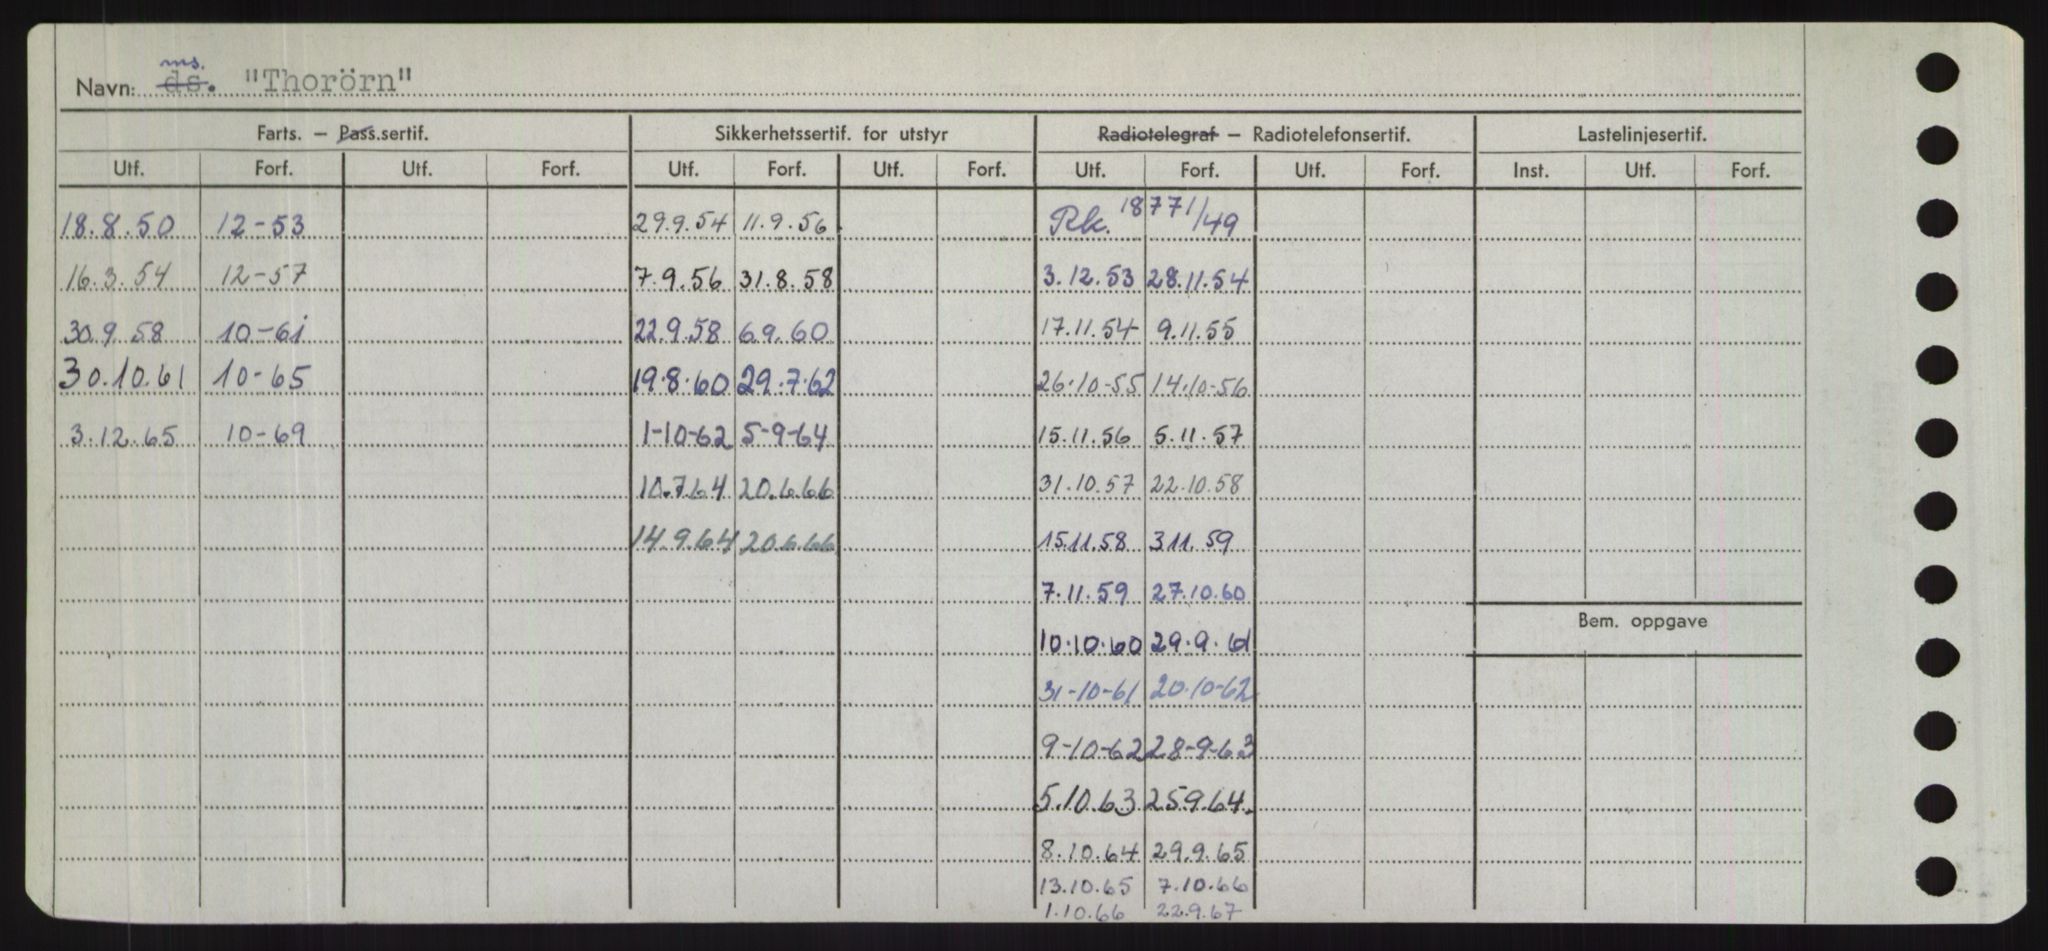 ms.
Navn: ds. "Thorörn"
Farts. — Pass.sertif. Sikkerhetssertif. for utstyr Radiotelegraf — Radiotelefonsertif. Lastelinjesertif.
Utf. Forf. Utf. Forf. Utf. Forf. Utf. Forf. Utf. Forf. Utf. Forf. Inst. Utf. Forf.
18.8.50 12-53 29.9.54 11.9.56 Rk. 18771/49
16.3.54 12-57 7.9.56 31.8.58 3.12.53 28.11.54
30.9.58 10-61 22.9.58 6.9.60 17.11.54 9.11.55
30.10.61 10-65 19.8.60 29.7.62 26.10-55 14.10-56
3.12.65 10-69 1-10-62 5-9-64 15.11.56 5.11.57
10.7.64 20.6.66 31.10.57 22.10.58
14.9.64 20.6.66 15.11.58 3.11.59
7.11.59 27.10.60
Bem. oppgave
10.10.60 29.9.61
31-10-61 20.10-62
9-10-62 28-9-63
5.10.63 25.9.64.
8.10.64 29.9.65
13.10.65 7.10.66
1.10.66 22.9.67